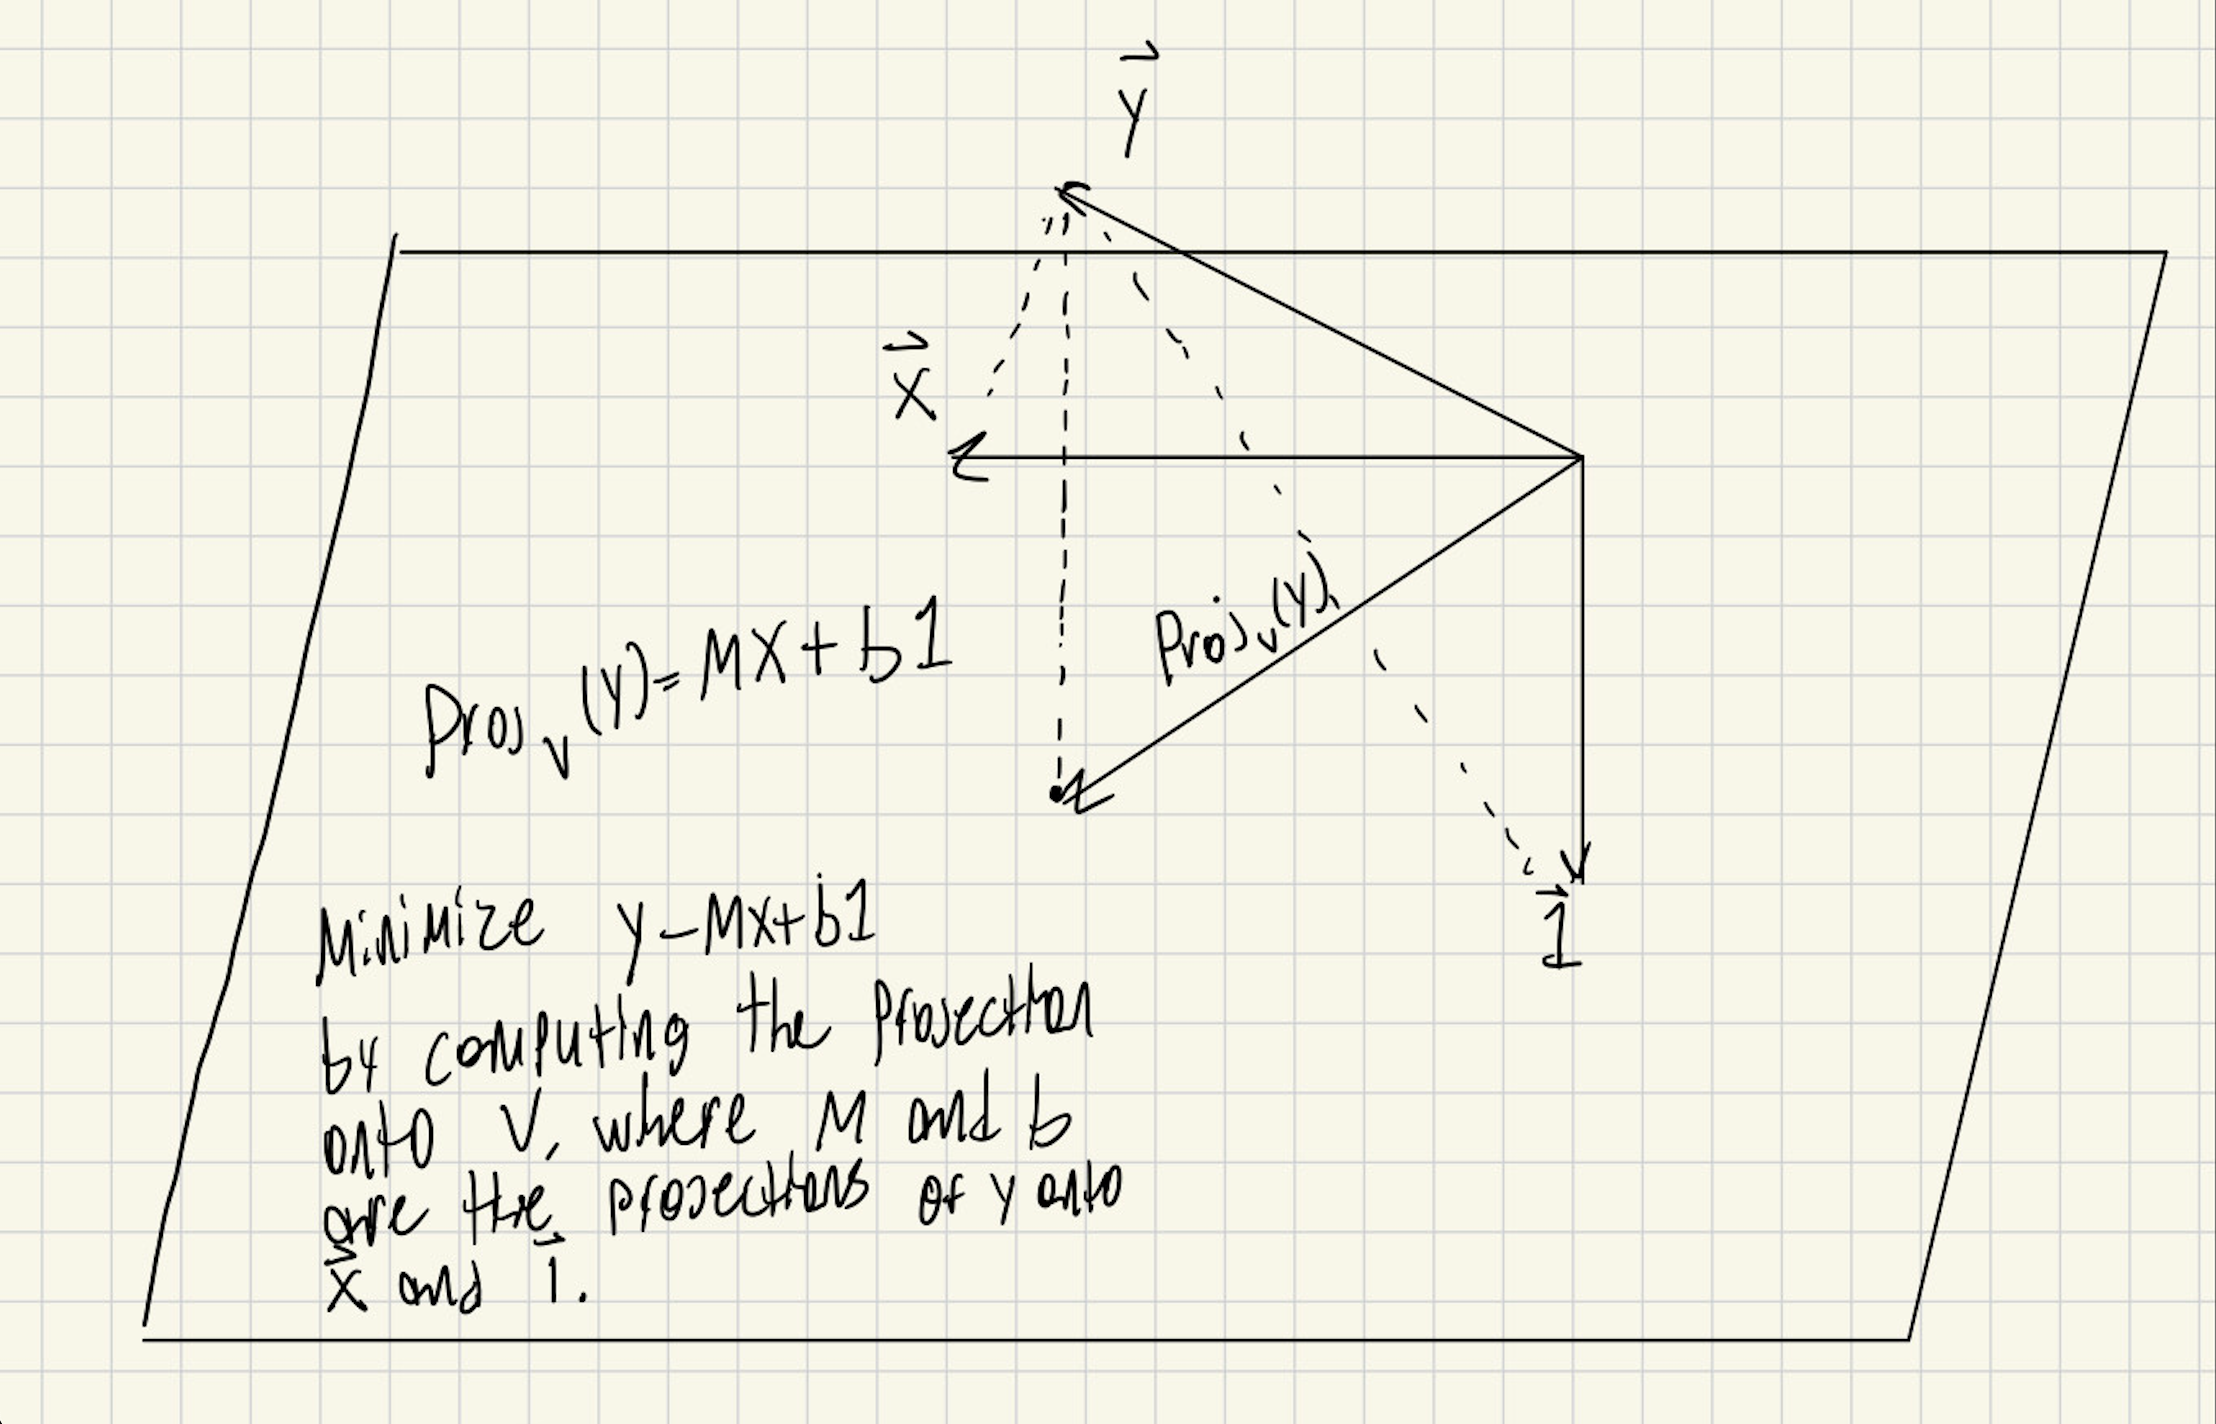 y⃗
x⃗
Proj_v(y)
Proj_v(y)=mx+b1
1⃗
Minimize y-mx+b1
by computing the projection
onto V, where m and b
are the projections of y onto
x⃗ and 1⃗.